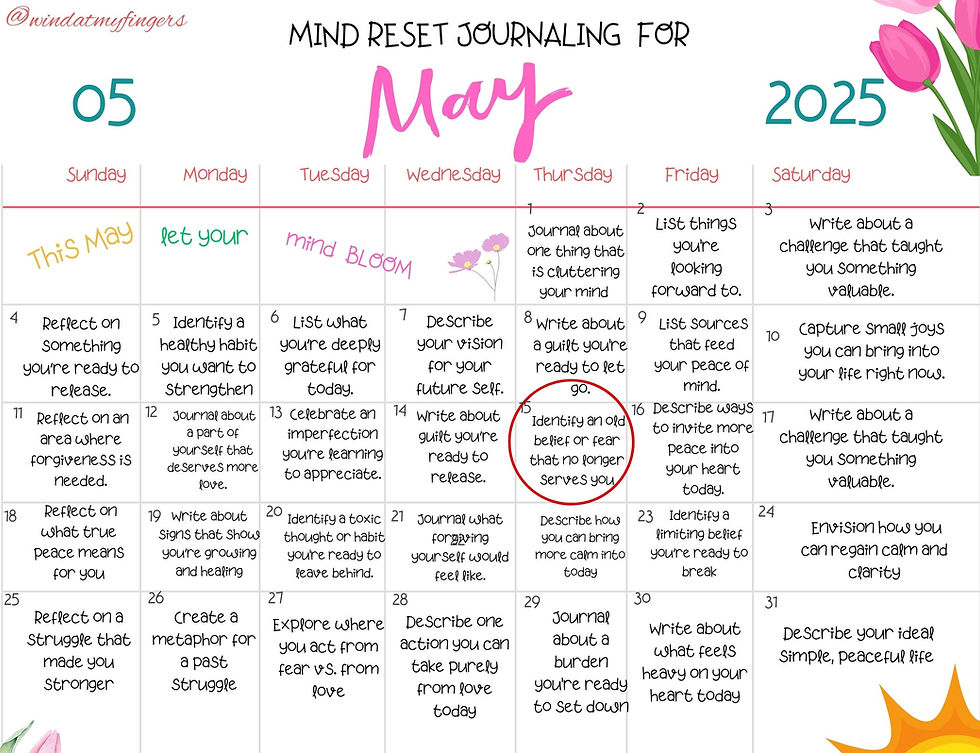 @windatmyfingers
MIND RESET JOURNALING FOR
05
May
2025
Sunday
Monday
Tuesday
Wednesday
Thursday
Friday
Saturday
This May
let your
mind BLOOM
1
Journal about
one thing that
is cluttering
your mind
2
List things
you're
looking
forward to.
3
Write about a
challenge that taught
you something
valuable.
4
Reflect on
something
you're ready to
release.
5
Identify a
healthy habit
you want to
strengthen
6
List what
you're deeply
grateful for
today.
7
Describe
your vision
for your
future self.
8
Write about
a guilt you're
ready to let
go.
9
List sources
that feed
your peace of
mind.
10
Capture small joys
you can bring into
your life right now.
11
Reflect on an
area where
forgiveness is
needed.
12
Journal about
a part of
yourself that
deserves more
love.
13
Celebrate an
imperfection
you're learning
to appreciate.
14
Write about
guilt you're
ready to
release.
15
Identify an old
belief or fear
that no longer
serves you
16
Describe ways
to invite more
peace into
your heart
today.
17
Write about a
challenge that taught
you something
valuable.
18
Reflect on
what true
peace means
for you
19
Write about
signs that show
you're growing
and healing
20
Identify a toxic
thought or habit
you're ready to
leave behind.
21
Journal what
forgiving
yourself would
feel like.
Describe how
you can bring
more calm into
today
23
Identify a
limiting belief
you're ready to
break
24
Envision how you
can regain calm and
clarity
25
Reflect on a
struggle that
made you
stronger
26
Create a
metaphor for
a past
struggle
27
Explore where
you act from
fear vs. from
love
28
Describe one
action you can
take purely
from love
today
29
Journal
about a
burden
you're ready
to set down
30
Write about
what feels
heavy on your
heart today
31
Describe your ideal
simple, peaceful life